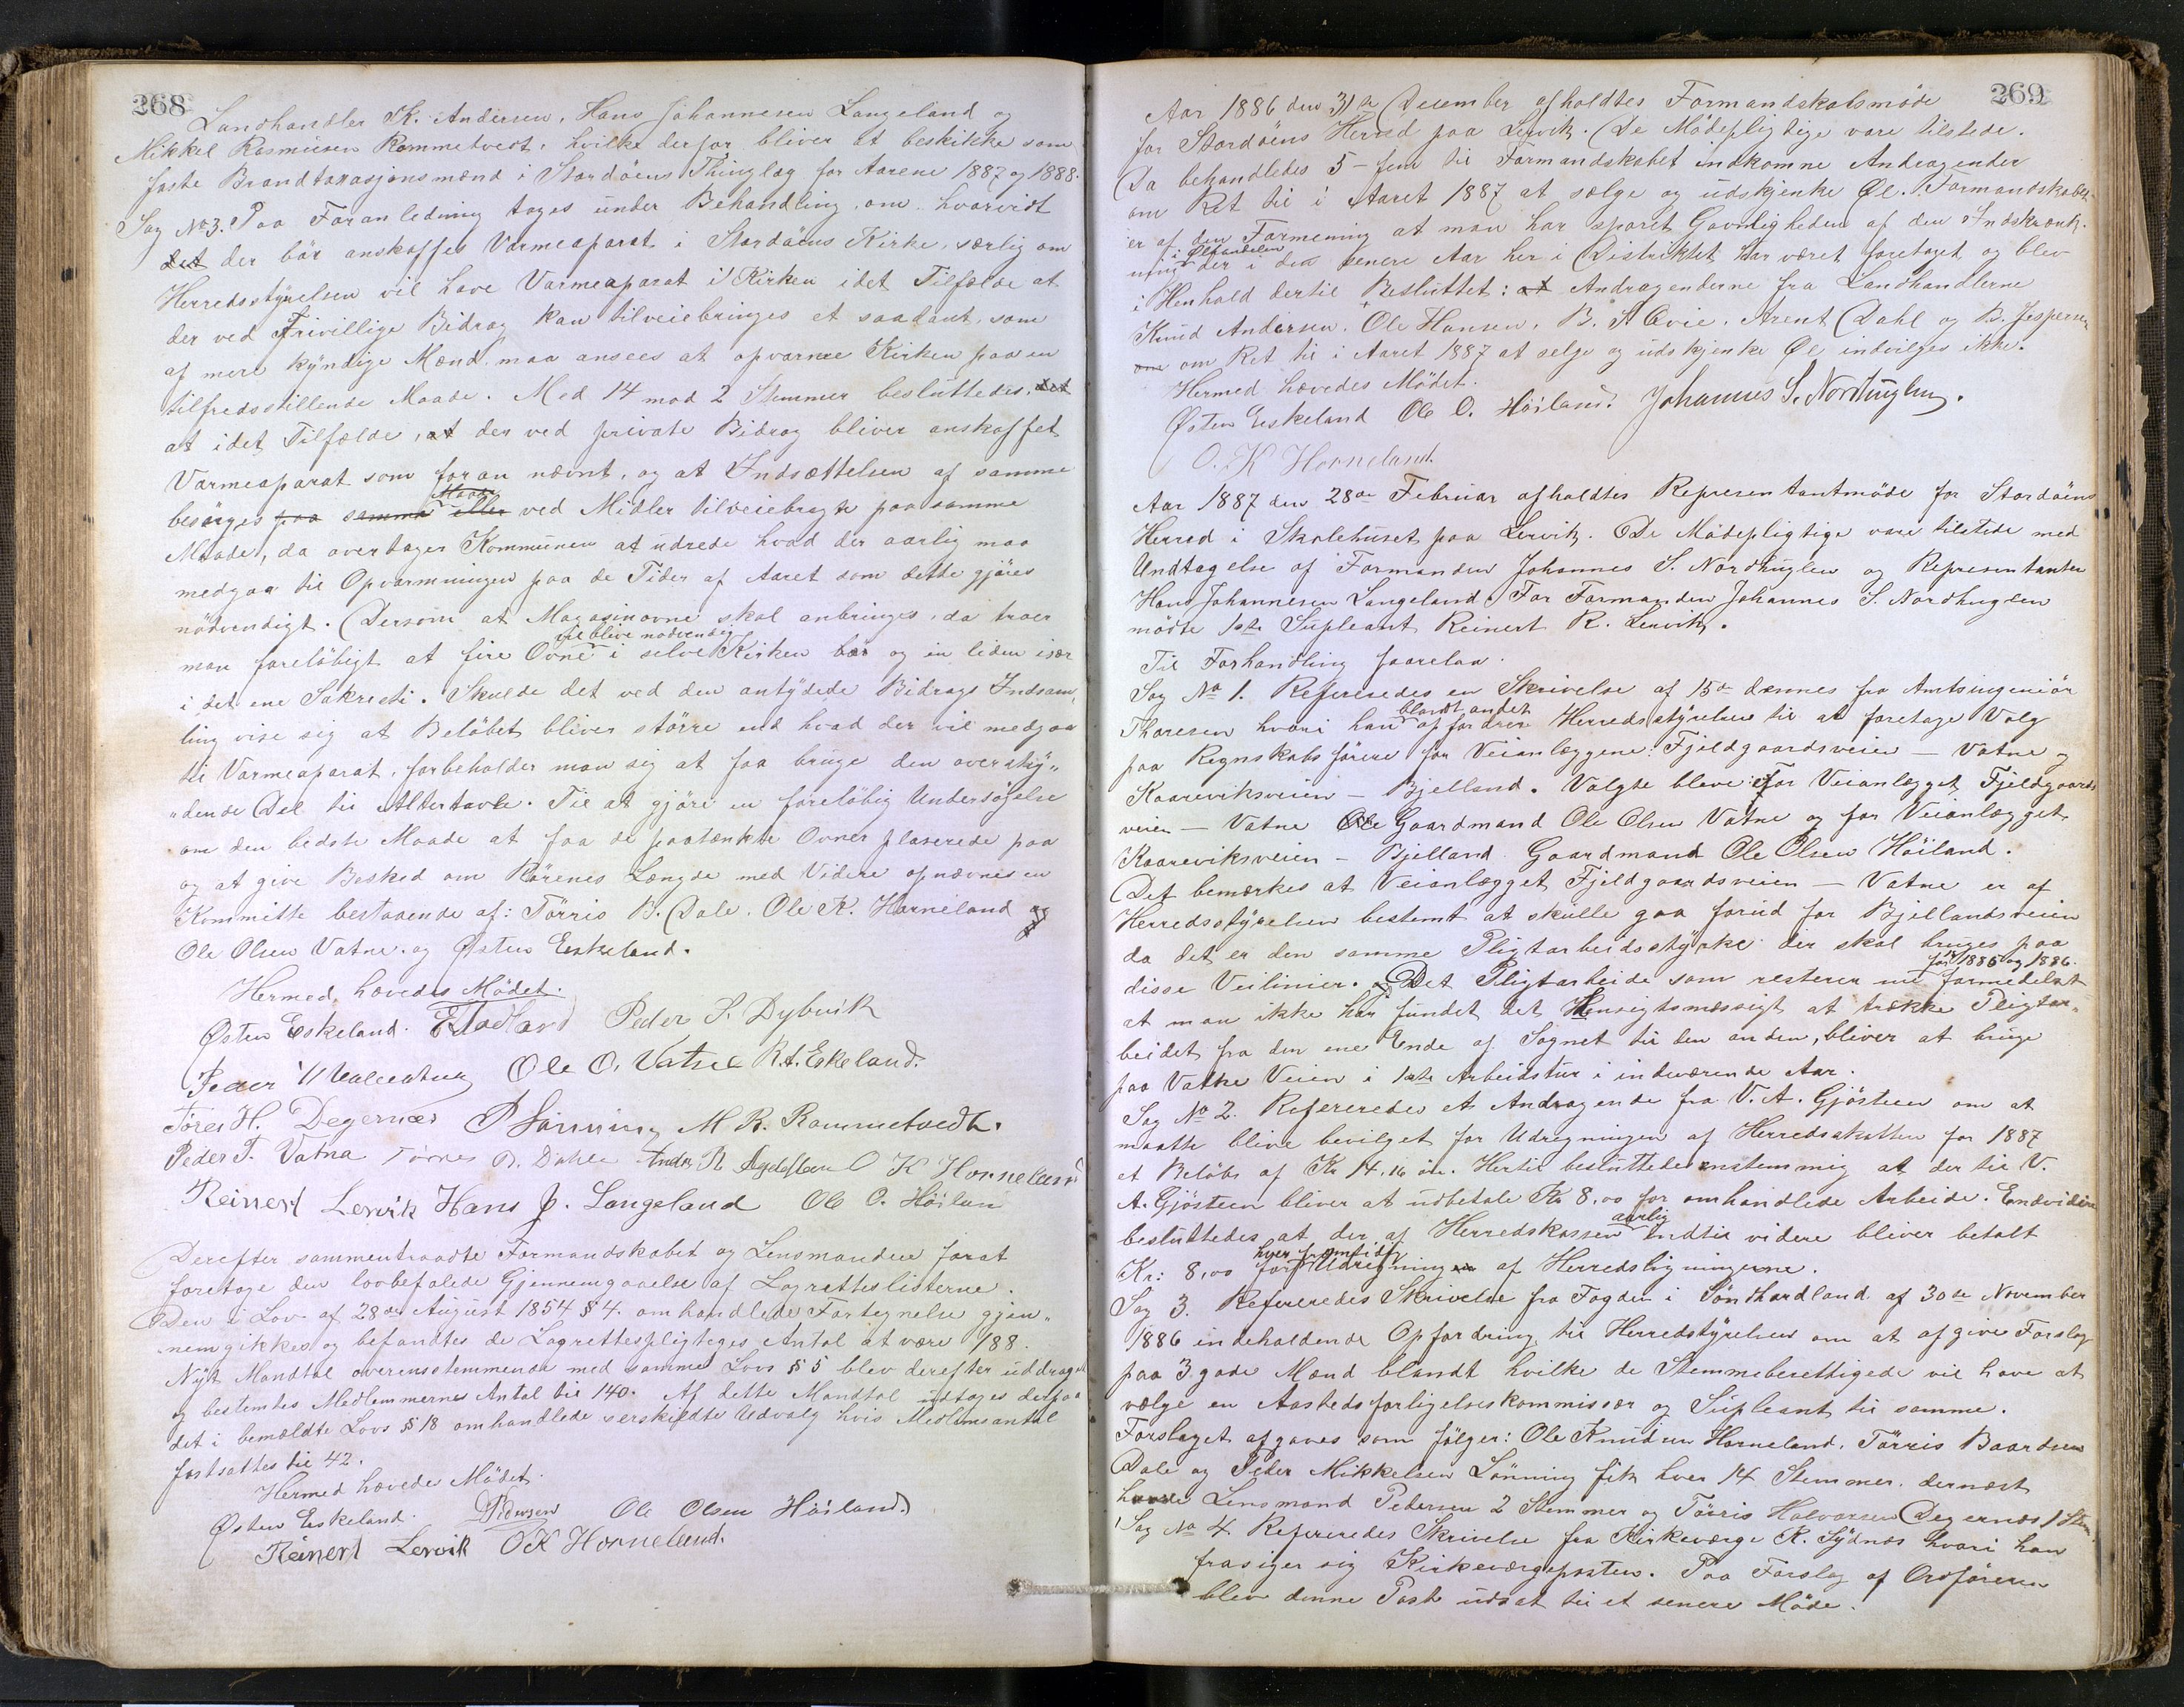 268
Landhandler K. Andersen, Hans Johannesen Langeland og
Mikkel Rasmusen Rommetvedt, hvilke derfor bliver at beskikke som
faste Brandtaxasjonsmænd i Stordøens Thinglag for Aarene 1887 og 1888.
Sag No 3. Paa Foranledning toges under Behandling om hvorvidt
det der bør anskaffes Varmeaparat i Stordøens Kirke, særlig om
Herredsstyrelsen vil have Varmeaparat i Kirken idet Tilfælde at
der ved Frivillige Bidrag kan tilveiebringes et saadant, som
af mere kyndige Mænd maa ansees at opvarme Kirken paa en
tilfredsstillende Maade. Med 14 mod 2 Stemmer besluttedes, det
at idet Tilfælde, at der ved private Bidrag bliver anskaffet
Varmeaparat som foran nævnt, og at Indsættelsen af samme
Maade
besørges paa samme eller ved Midler tilveiebragte paa samme
Maade, da overtager Kommunen at udrede hvad der aarlig maa
medgaa til Opvarmningen paa de Tider af Aaret som dette gjøres
nødvendigt. Dersom at Magasinovne skal anbringes, da troer
vil blive nødvendig
man foreløbigt at fire Ovne i selve Kirken bør og en liden især
i det ene Sakresti. Skulde det ved den antydede Bidrags Indsam,
ling vise sig at Beløbet bliver større end hvad der vil medgaa
til Varmeaparat, forbeholder man sig at faa bruge den oversky„
„dende Del til Altertavle. Til at gjøre en foreløbig Undersøgelse
om den bedste Maade at faa de paatænkte Ovner plaserede paa
og at give Besked om Rørenes Længde med Videre opnævnes en
Kommitte bestaaende af: Tørris B. Dale, Ole K. Horneland og
Ole Olsen Vatne og Østen Eskeland.
Hermed hævedes Mødet.
Østen Eskeland. Peder S. Dybvik
Peder Ole O. Vatne R. A. Eskeland.
Tøres H. Degernæs P Lønning M. R. Rommetvedt.
Peder T. Vatna Tørres B. Dahle O K Horneland
Reinert Lervik Hans J. Langeland Ole O. Høilan
Derefter sammentraadte Formandskabet og Lensmanden forat
foretage den lovbefalede Gjennemgaaelse af Lagretteslisterne.
Den i Lov af 28de August 1854 § 4. omhandlede Fortegnelse gjen„
nemgikkes og befandtes de Lagrettespligtiges Antal at være 188.
Nyt Mandtal overensstemmende med samme Lovs § 5 blev derefter uddraget
og bestemtes Medlemmernes Antal til 140. Af dette Mandtal udtoges derpaa
det i bemældte Lovs § 18 omhandlede serskildte Udvalg hvis Medlemsantal
fastsattes til 42.
Hermed hævedes Mødet.
Østen Eskeland. Pedersen Ole Olsen Høiland
Reinert Lervik O K Horneland.
269
Aar 1886 den 31te December afholdtes Formandskabsmøde
for Stordøens Herred paa Lervik. De Mødepligtige vare tilstede.
Da behandledes 5 - fem til Formandskabet indkomne Andragender
om Ret til i Aaret 1887 at sælge og udskjenke Øl. Formandskabet
er af den Formening at man har sporet Gavnligheden af den Indskrænk-
i Ølhandelen
ning der i den senere Aar her i Distriktet har været foretaget og blev
i Henhold dertil Besluttet: at Andragenderne fra Landhandlerne
Knud Andersen. Ole Hansen. B. A Evie. Arent Dahl og B. Jespersen
om om Ret til i Aaret 1887 at selge og udskjenke Øl indvilges ikke.
Hermed hævedes Mødet.
Østen Eskeland Ole O. Høiland. Johannes S. Nordhuglen.
O. K Horneland.
Aar 1887 den 28de Februar afholdtes Representantmøde for Stordøens
Herred i Skolehuset paa Lervik. De Mødepligtige vare tilstede med
Undtagelse af Formanden Johannes S. Nordhuglen og Representanten
Hans Johannesen Langeland. For Formanden Johannes S. Nordhuglen
mødte 1ste Supleant Reinert R. Lervik.
Til Forhandling foorelaa.
Sag No 1. Refereredes en Skrivelse af 15de dennes fra Amtsingeniør
blandt andet
Thoresen hvori han opfordrer Herredsstyrelsen til at foretage Valg
paa Regnskabsførere for Veianlæggene: Fjeldgaardsveien - Vatne og
Kaareviksveien - Bjelland. Valgte bleve: For Veianlægget Fjeldgaards
veien - Vatne Ole Gaardmand Ole Olsen Vatne og for Veianlægget
Kaareviksveien - Bjelland Gaardmand Ole Olsen Høiland.
Det bemærkes at Veianlægget Fjeldgaardsveien - Vatne er af
Herredsstyrelsen bestemt at skulle gaa forud for Bjellandsveien
da det er den samme Pligtarbeidsstyrke der skal bruges paa
for 1885 og 1886.
disse Veilinier. og Det Pligtarbeide som resterer formedelst
at man ikke har fundet det Hensigtsmæssigt at trække Pligtar„
beidet fra den ene Ende af Sognet til den anden, bliver at bruge
paa Vatne Veien i 1ste Arbeidstur i indeværende Aar.
Sag No 2. Refereredes et Andragende fra V. A. Gjøsteen om at
maatte blive bevilget for Udregningen af Herredsskatten for 1887
et Beløb af Kr 14,16 øre. Hertil besluttedes enstemmig at der til V.
A. Gjøsteen bliver at udbetale Kr 8,00 for omhandlede Arbeide. Endvidere
aarlig
besluttedes at der af Herredskassen indtil videre bliver betalt
hver fremtidig
Kr: 8,00 for Udregningen af Herredsligningerne.
Sag 3. Refereredes Skrivelse fra Fogden i Søndhordland af 30te November
1886 indeholdende Opfordring til Herredstyrelsen om at afgive Forslag
paa 3 gode Mænd blandt hvilke de Stemmeberettigede vil have at
vælge en Aastedsforligelseskommissær og Supleant til samme.
Forslaget afgaves som følger: Ole Knudsen Horneland. Tørris Baardsen
Dale og Peder Mikkelsen Lønning fik hver 14 Stemmer. dernæst
havde Lensmand Pedersen 2 Stemmer og Tørris Halvorsen Degernæs 1 Stem
Sag No 4. Refereredes Skrivelse fra Kirkeværge R. Sydnes hvori han
frasiger sig Kirkeværgeposten. Paa Forslag af Ordføreren
blev denne Post udsat til et senere Møde.